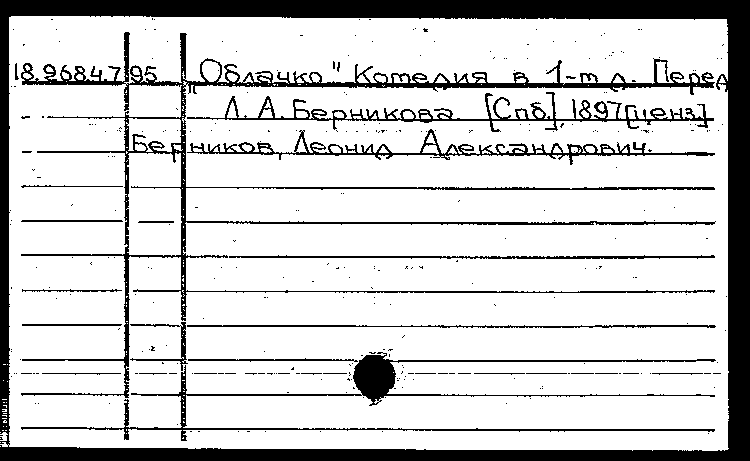 18.9684.7 95 „Облачко" Комедия в 1-m д. Перед
Л. А. Берникова. [Спб], 1897[ценз]
Берников, Леонид Александрович.